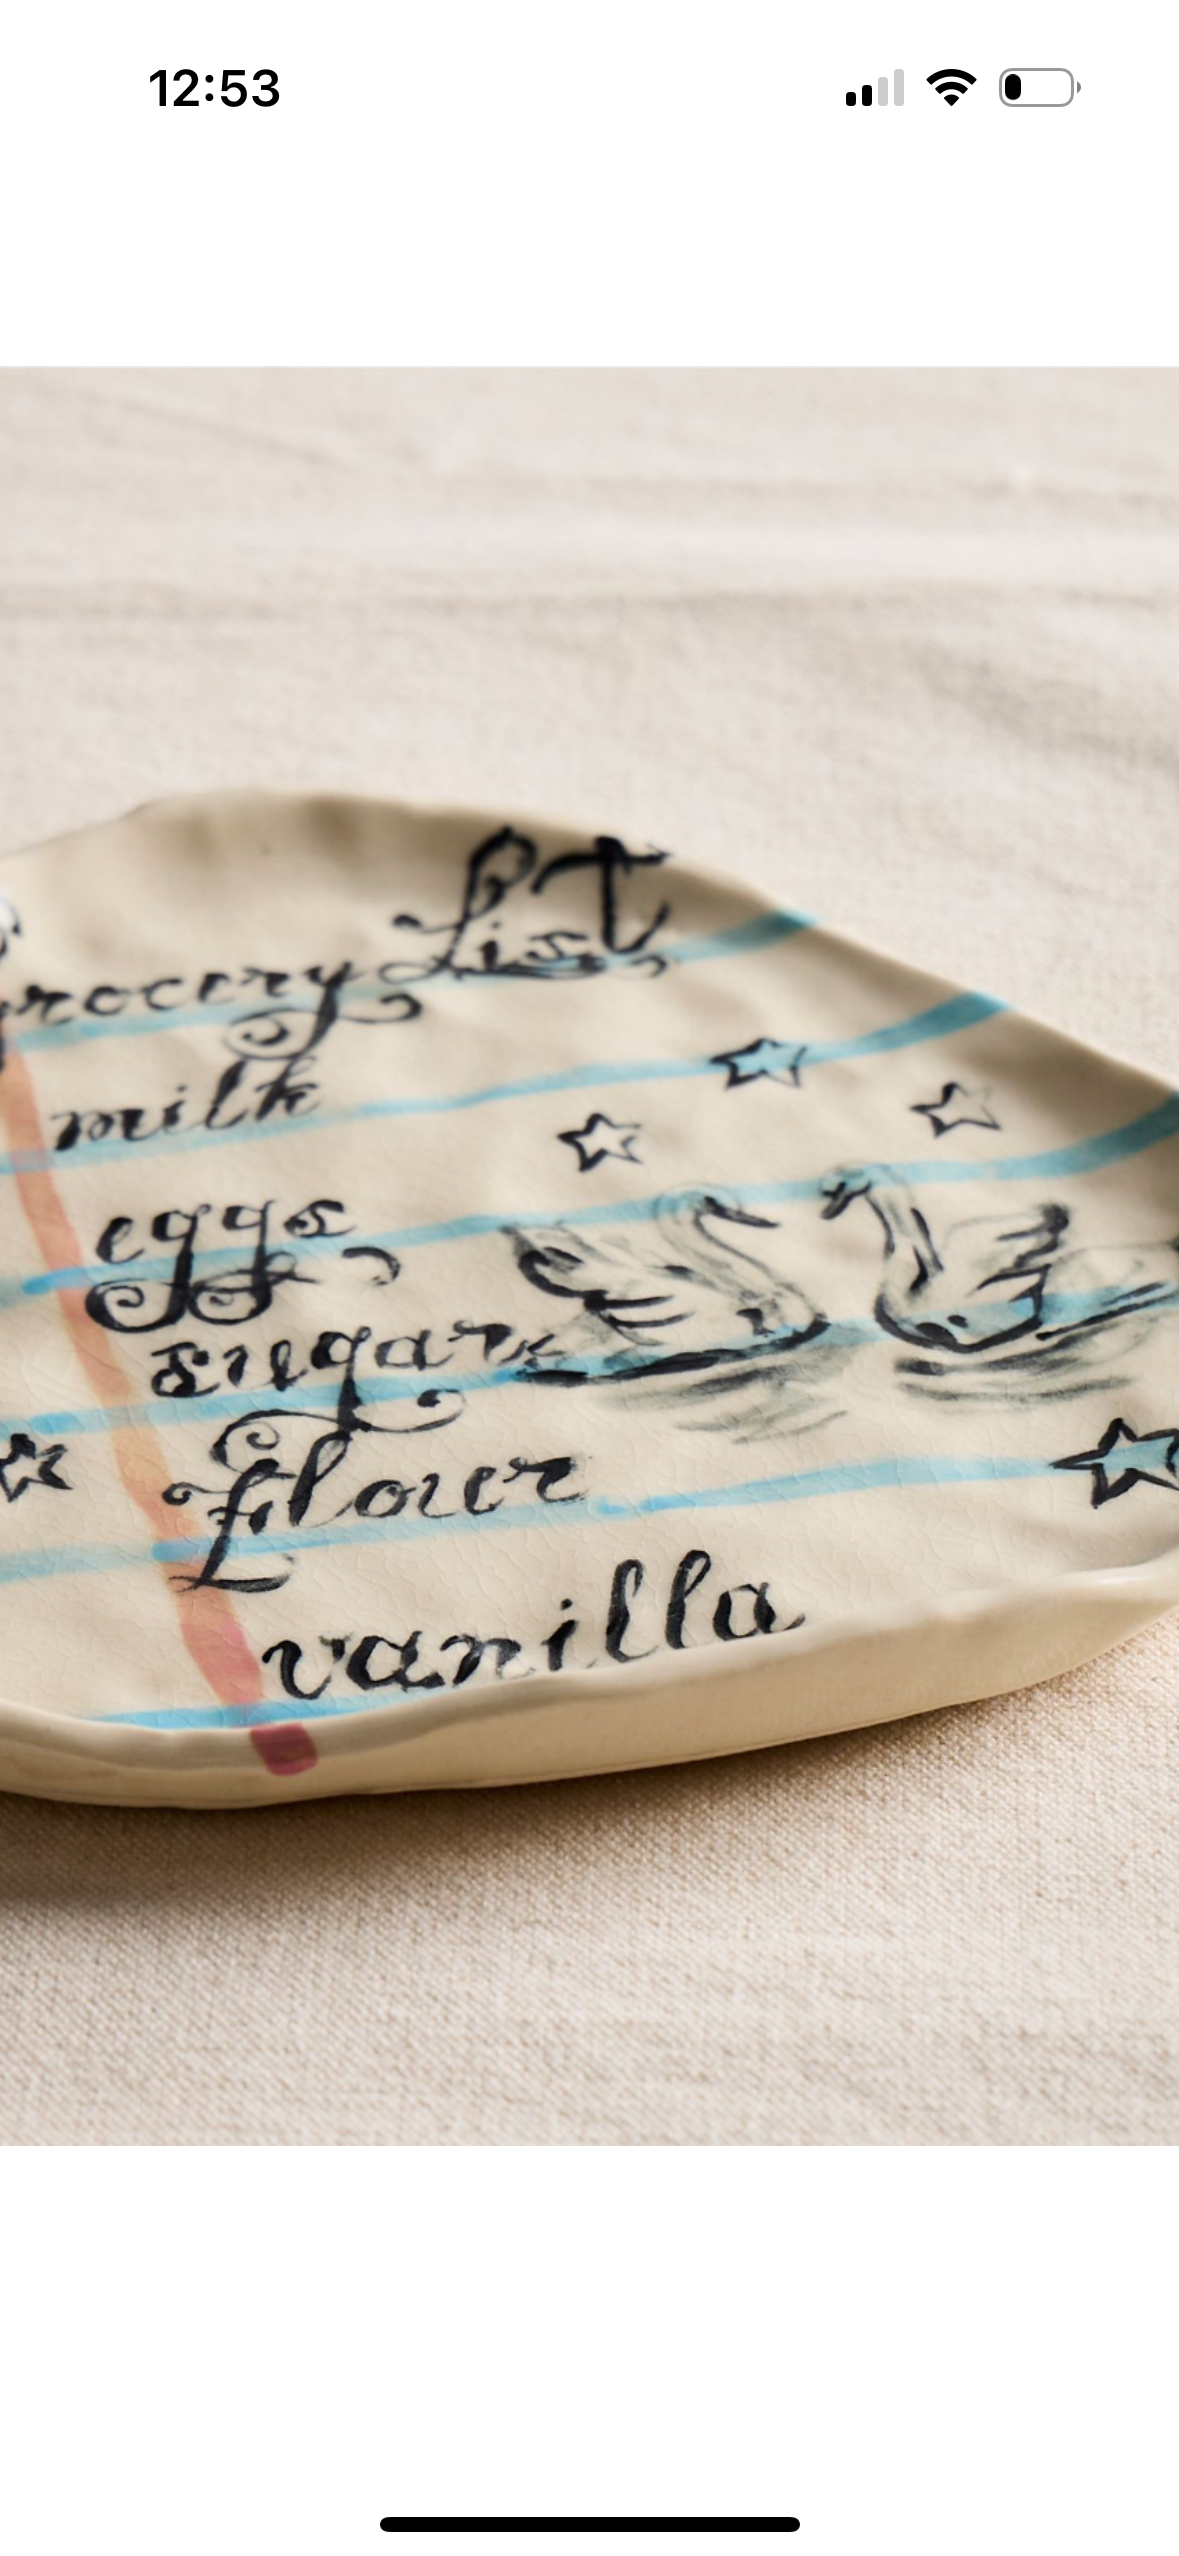 12:53
Grocery List
milk
eggs
sugar
Flour
vanilla